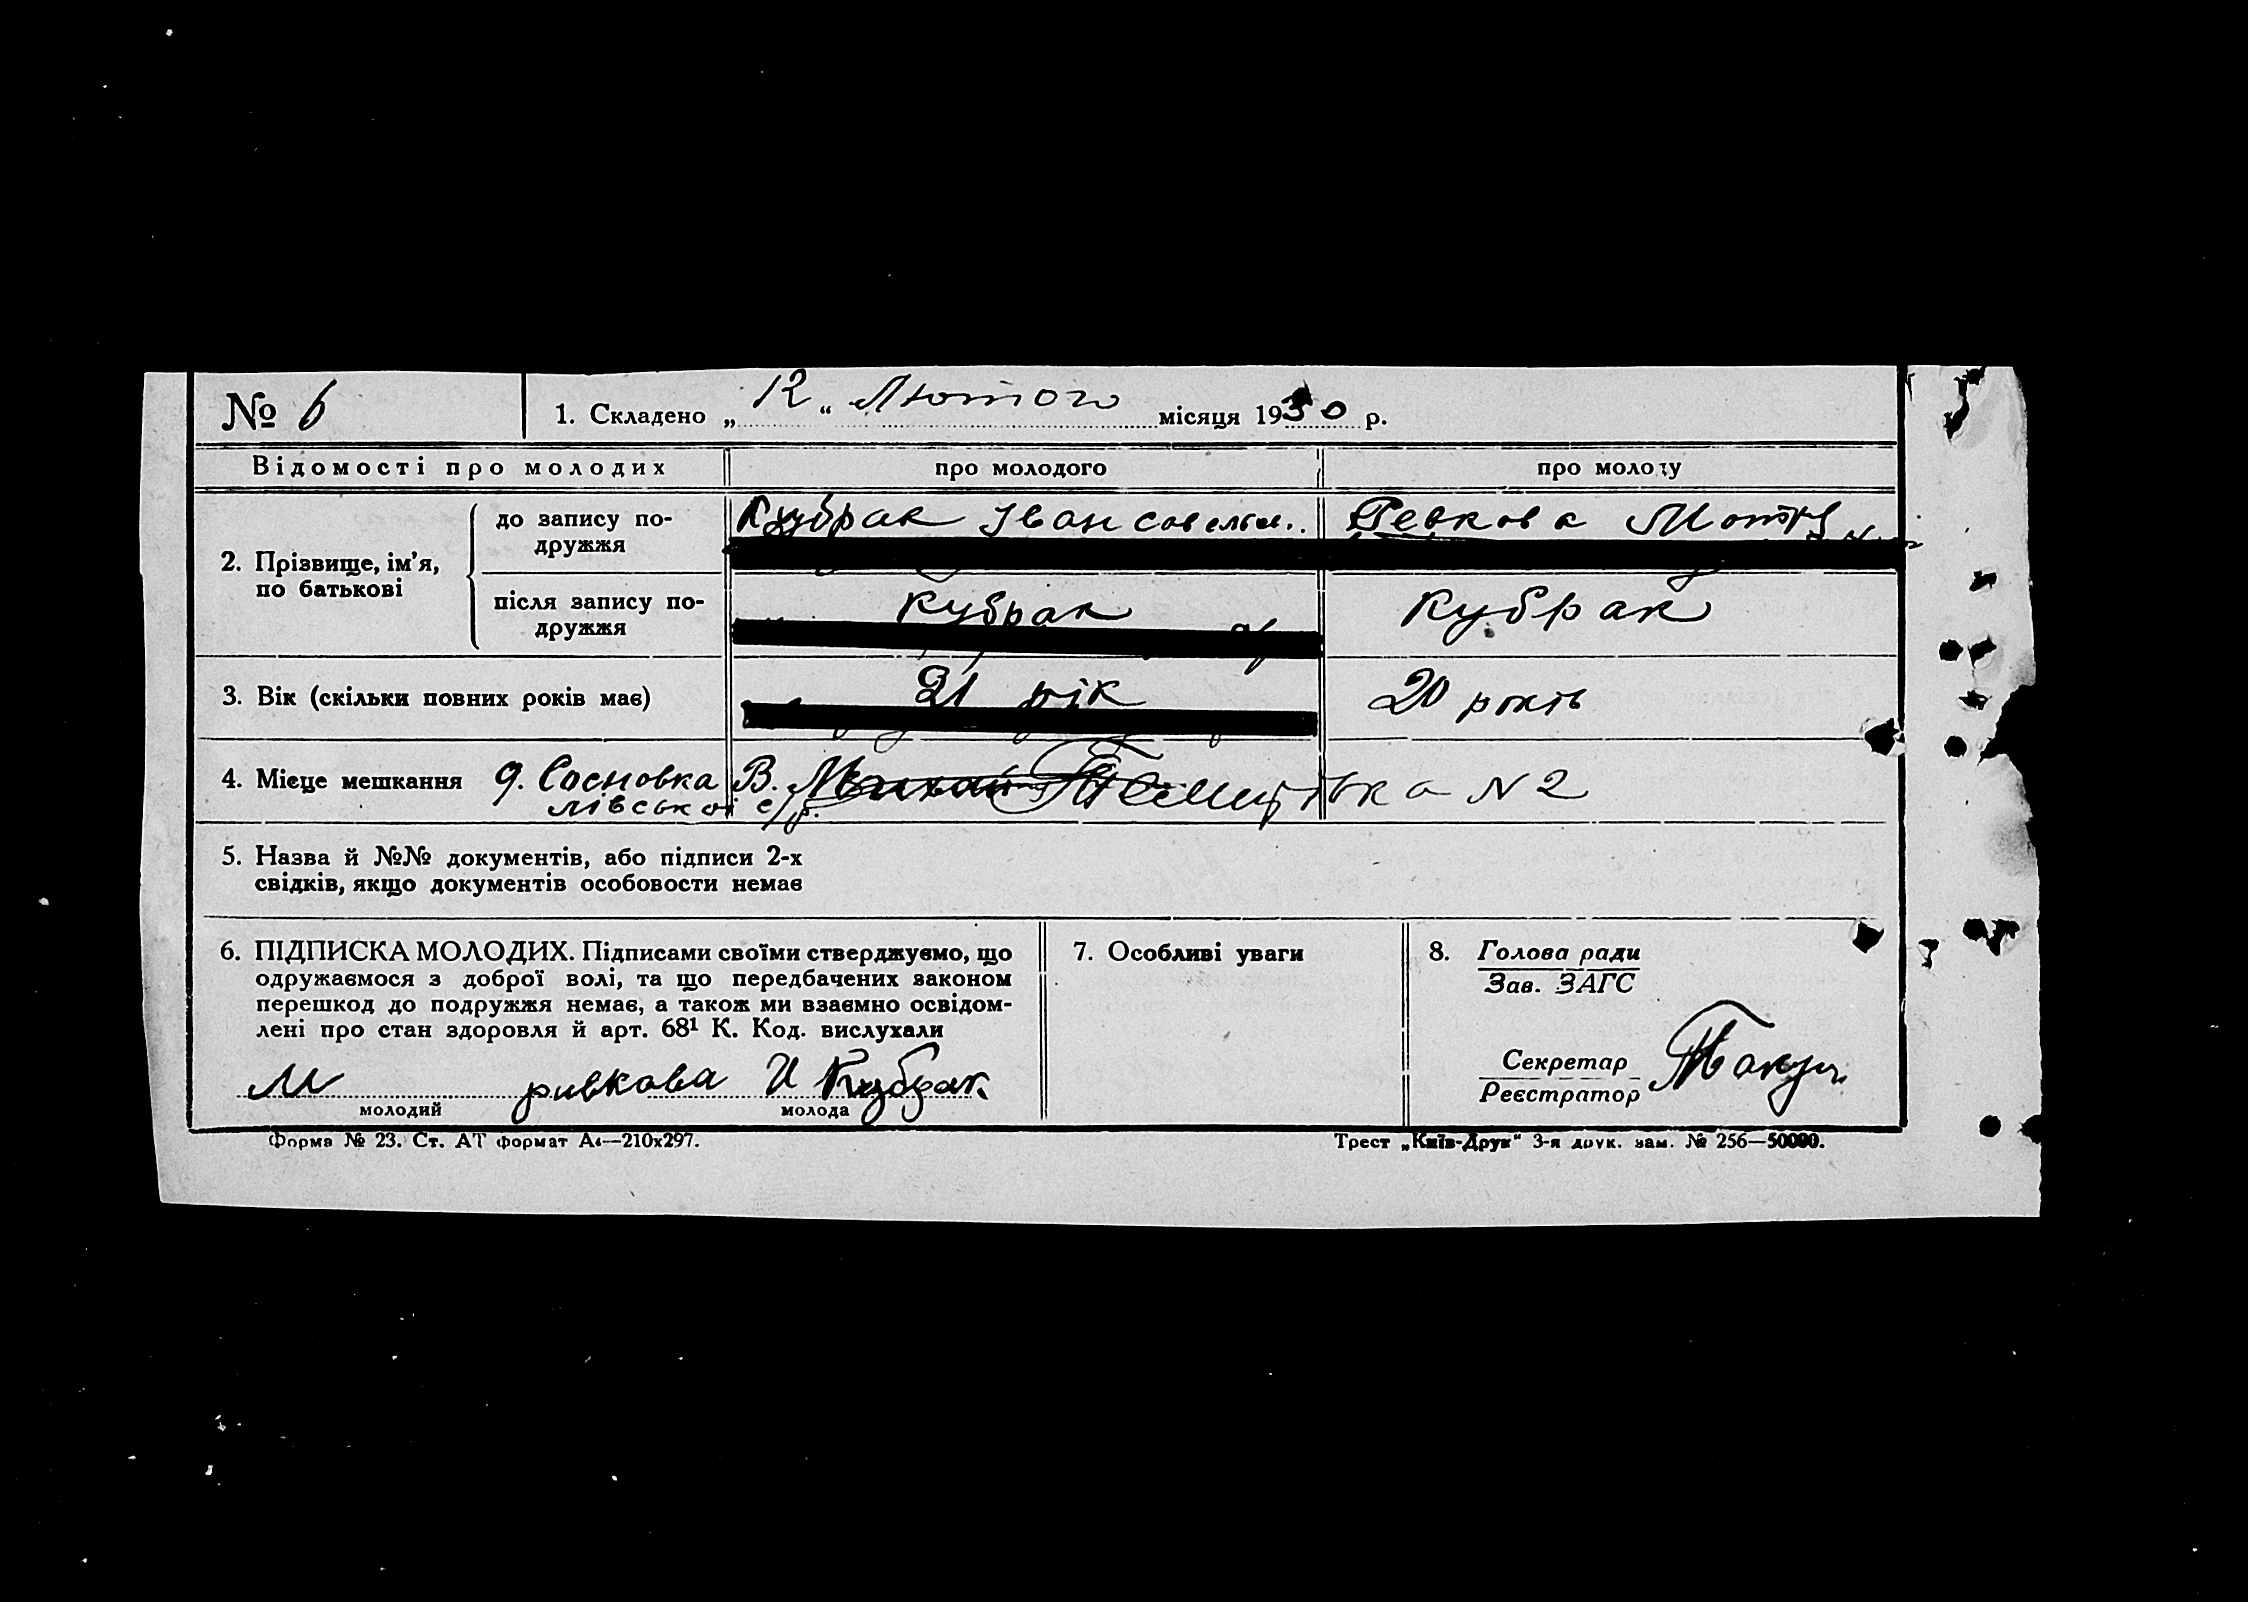 № 6
1. Складено „12“ Лютого місяця 1930 р.
Відомості про молодих
про молодого
про молоду
2. Прізвище, ім’я,
по батькові
до запису по-
дружжя
Кубрак Іван Савельев..
Ревкова Мотря
після запису по-
дружжя
Кубрак
Кубрак
3. Вік (скільки повних років має)
21 рік
20 років
4. Місце мешкання
д. Сосновка В.
лівської с/р.
№ 2
5. Назва й №№ документів, або підписи 2-х
свідків, якщо документів особовости немає
6. ПІДПИСКА МОЛОДИХ. Підписами своїми стверджуємо, що
одружаємося з доброї волі, та що передбачених законом
перешкод до подружжя немає, а також ми взаємно освідом-
лені про стан здоровля й арт. 68¹ К. Код. вислухали
М ривкова И Кубрак
молодий
молода
7. Особливі уваги
8. Голова ради
Зав. ЗАГС
Секретар
Реєстратор
Форма № 23. Ст. АТ формат А4—210х297.
Трест „Київ-Друк“ 3-я друк. зам. № 256—50000.